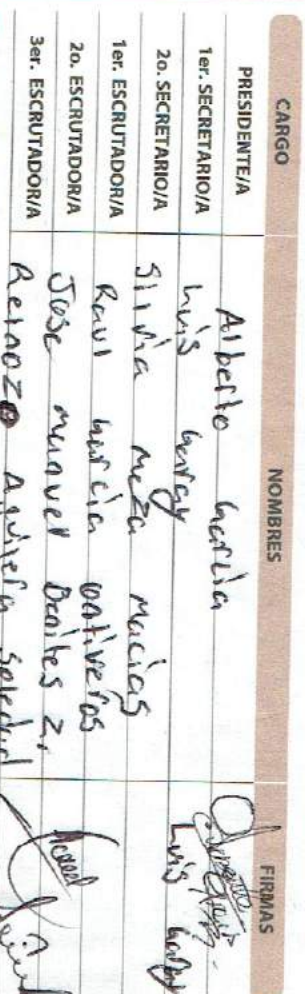 CARGO NOMBRES FIRMAS
PRESIDENTE/A Alberto García
1er. SECRETARIO/A Luis Garay Luis Garay
2o. SECRETARIO/A Silvia Meza Macias
1er. ESCRUTADOR/A Raul García ontiveros
2o. ESCRUTADOR/A Jose manuel Benites Z.
3er. ESCRUTADOR/A Reinoza Aguilera Soledad